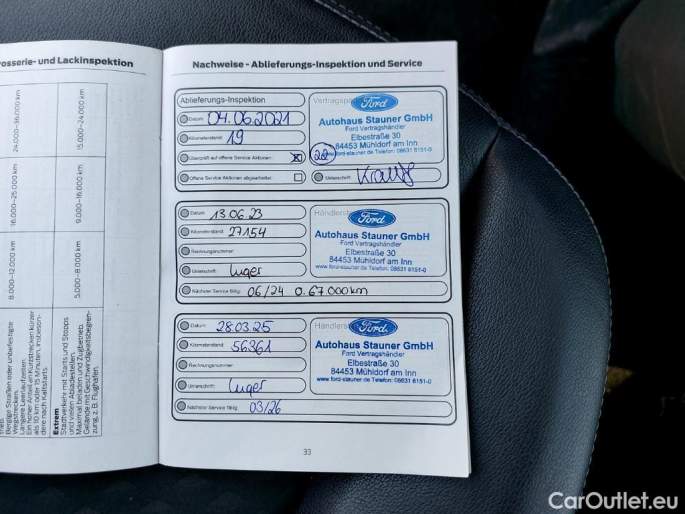 osserie- und Lackinspektion
24.000–36.000 km
15.000–24.000 km
16.000–25.000 km
9.000–16.000 km
8.000–12.000 km
5.000–8.000 km
Bergige Straßen oder unbefestigte
Wegstrecken.
Längere Leerlaufzeiten.
Ein hoher Anteil an Kurzstrecken kürzer
als 10 km oder 15 Minuten, insbeson-
dere nach Kaltstarts.
Extrem
Stadtverkehr mit Starts und Stopps
und vielen Abladestellen.
Maximal beladen und Zugbetrieb.
Gelände mit Geschwindigkeitsbegren-
zung, z. B. Flughafen.
Nachweise - Ablieferungs-Inspektion und Service
Ablieferungs-Inspektion
Datum: 04.06.2021
Kilometerstand: 19
Überprüft auf offene Service Aktionen: X
Offene Service Aktionen abgearbeitet:
Ford
Autohaus Stauner GmbH
Ford Vertragshändler
Elbestraße 30
84453 Mühldorf am Inn
www.ford-stauner.de Telefon: 08631 6151-0
Unterschrift:
Datum: 13.06.23
Kilometerstand: 27154
Rechnungsnummer:
Unterschrift: Luger
Nächster Service fällig: 06/24 o. 67.000km
Händlerste
Ford
Autohaus Stauner GmbH
Ford Vertragshändler
Elbestraße 30
84453 Mühldorf am Inn
www.ford-stauner.de Telefon: 08631 6151-0
Datum: 28.03.25
Kilometerstand: 56361
Rechnungsnummer:
Unterschrift: Luger
Nächster Service fällig: 03/26
Händlerste
Ford
Autohaus Stauner GmbH
Ford Vertragshändler
Elbestraße 30
84453 Mühldorf am Inn
www.ford-stauner.de Telefon: 08631 6151-0
33
CarOutlet.eu